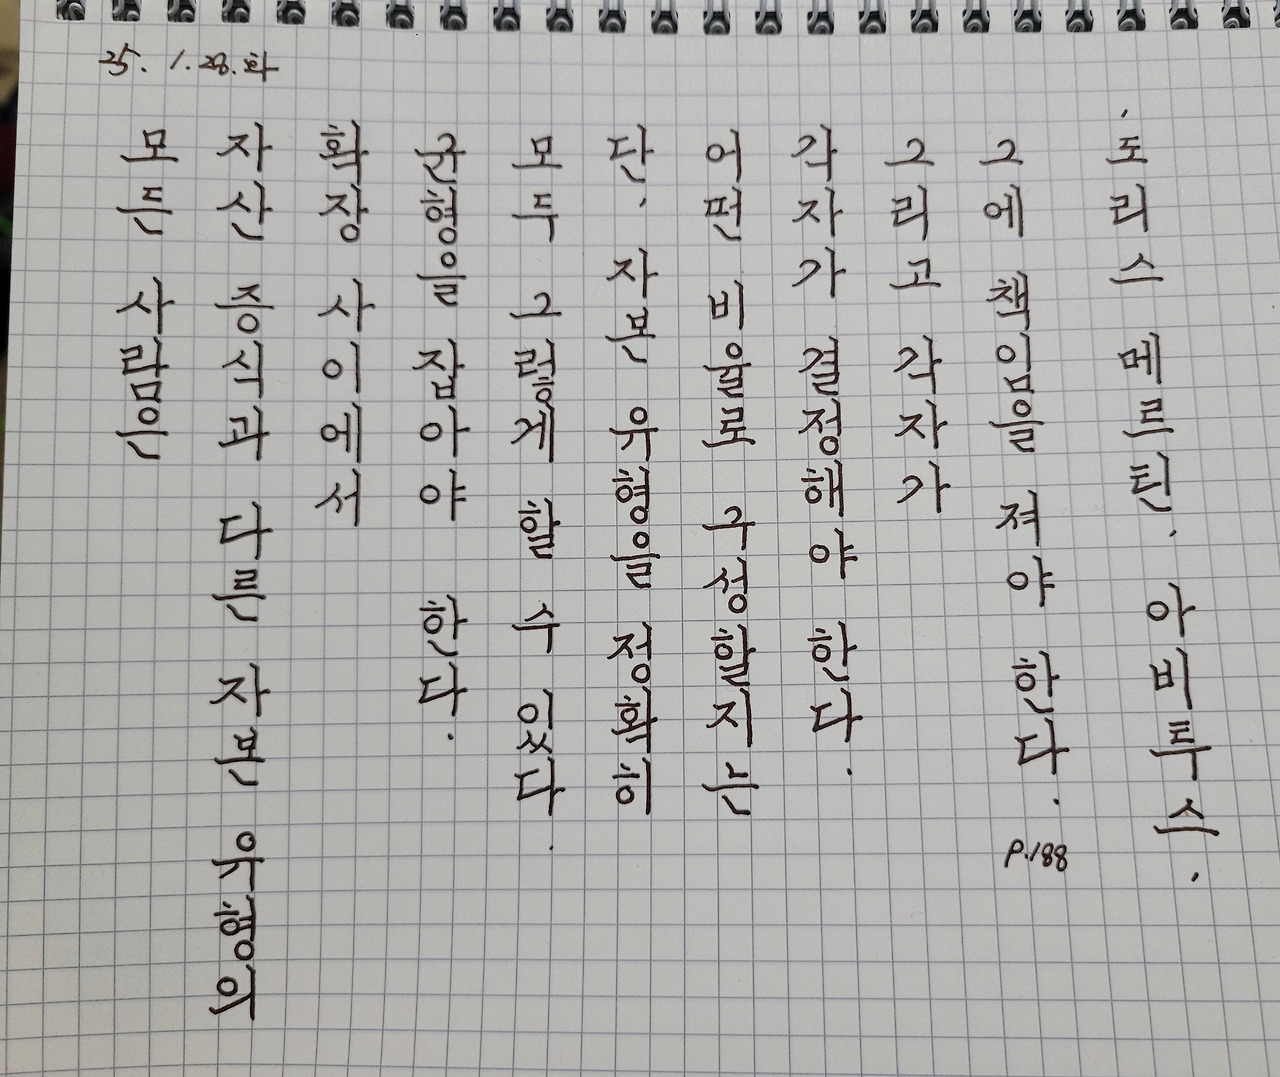 25. 1. 28. 화
모든 사람은
자산 증식과 다른 자본 유형의
확장 사이에서
균형을 잡아야 한다.
모두 그렇게 할 수 있다.
단, 자본 유형을 정확히
어떤 비율로 구성할지는
각자가 결정해야 한다.
그리고 각자가
그에 책임을 져야 한다.
P.188
·도리스 메르틴. 아비투스.